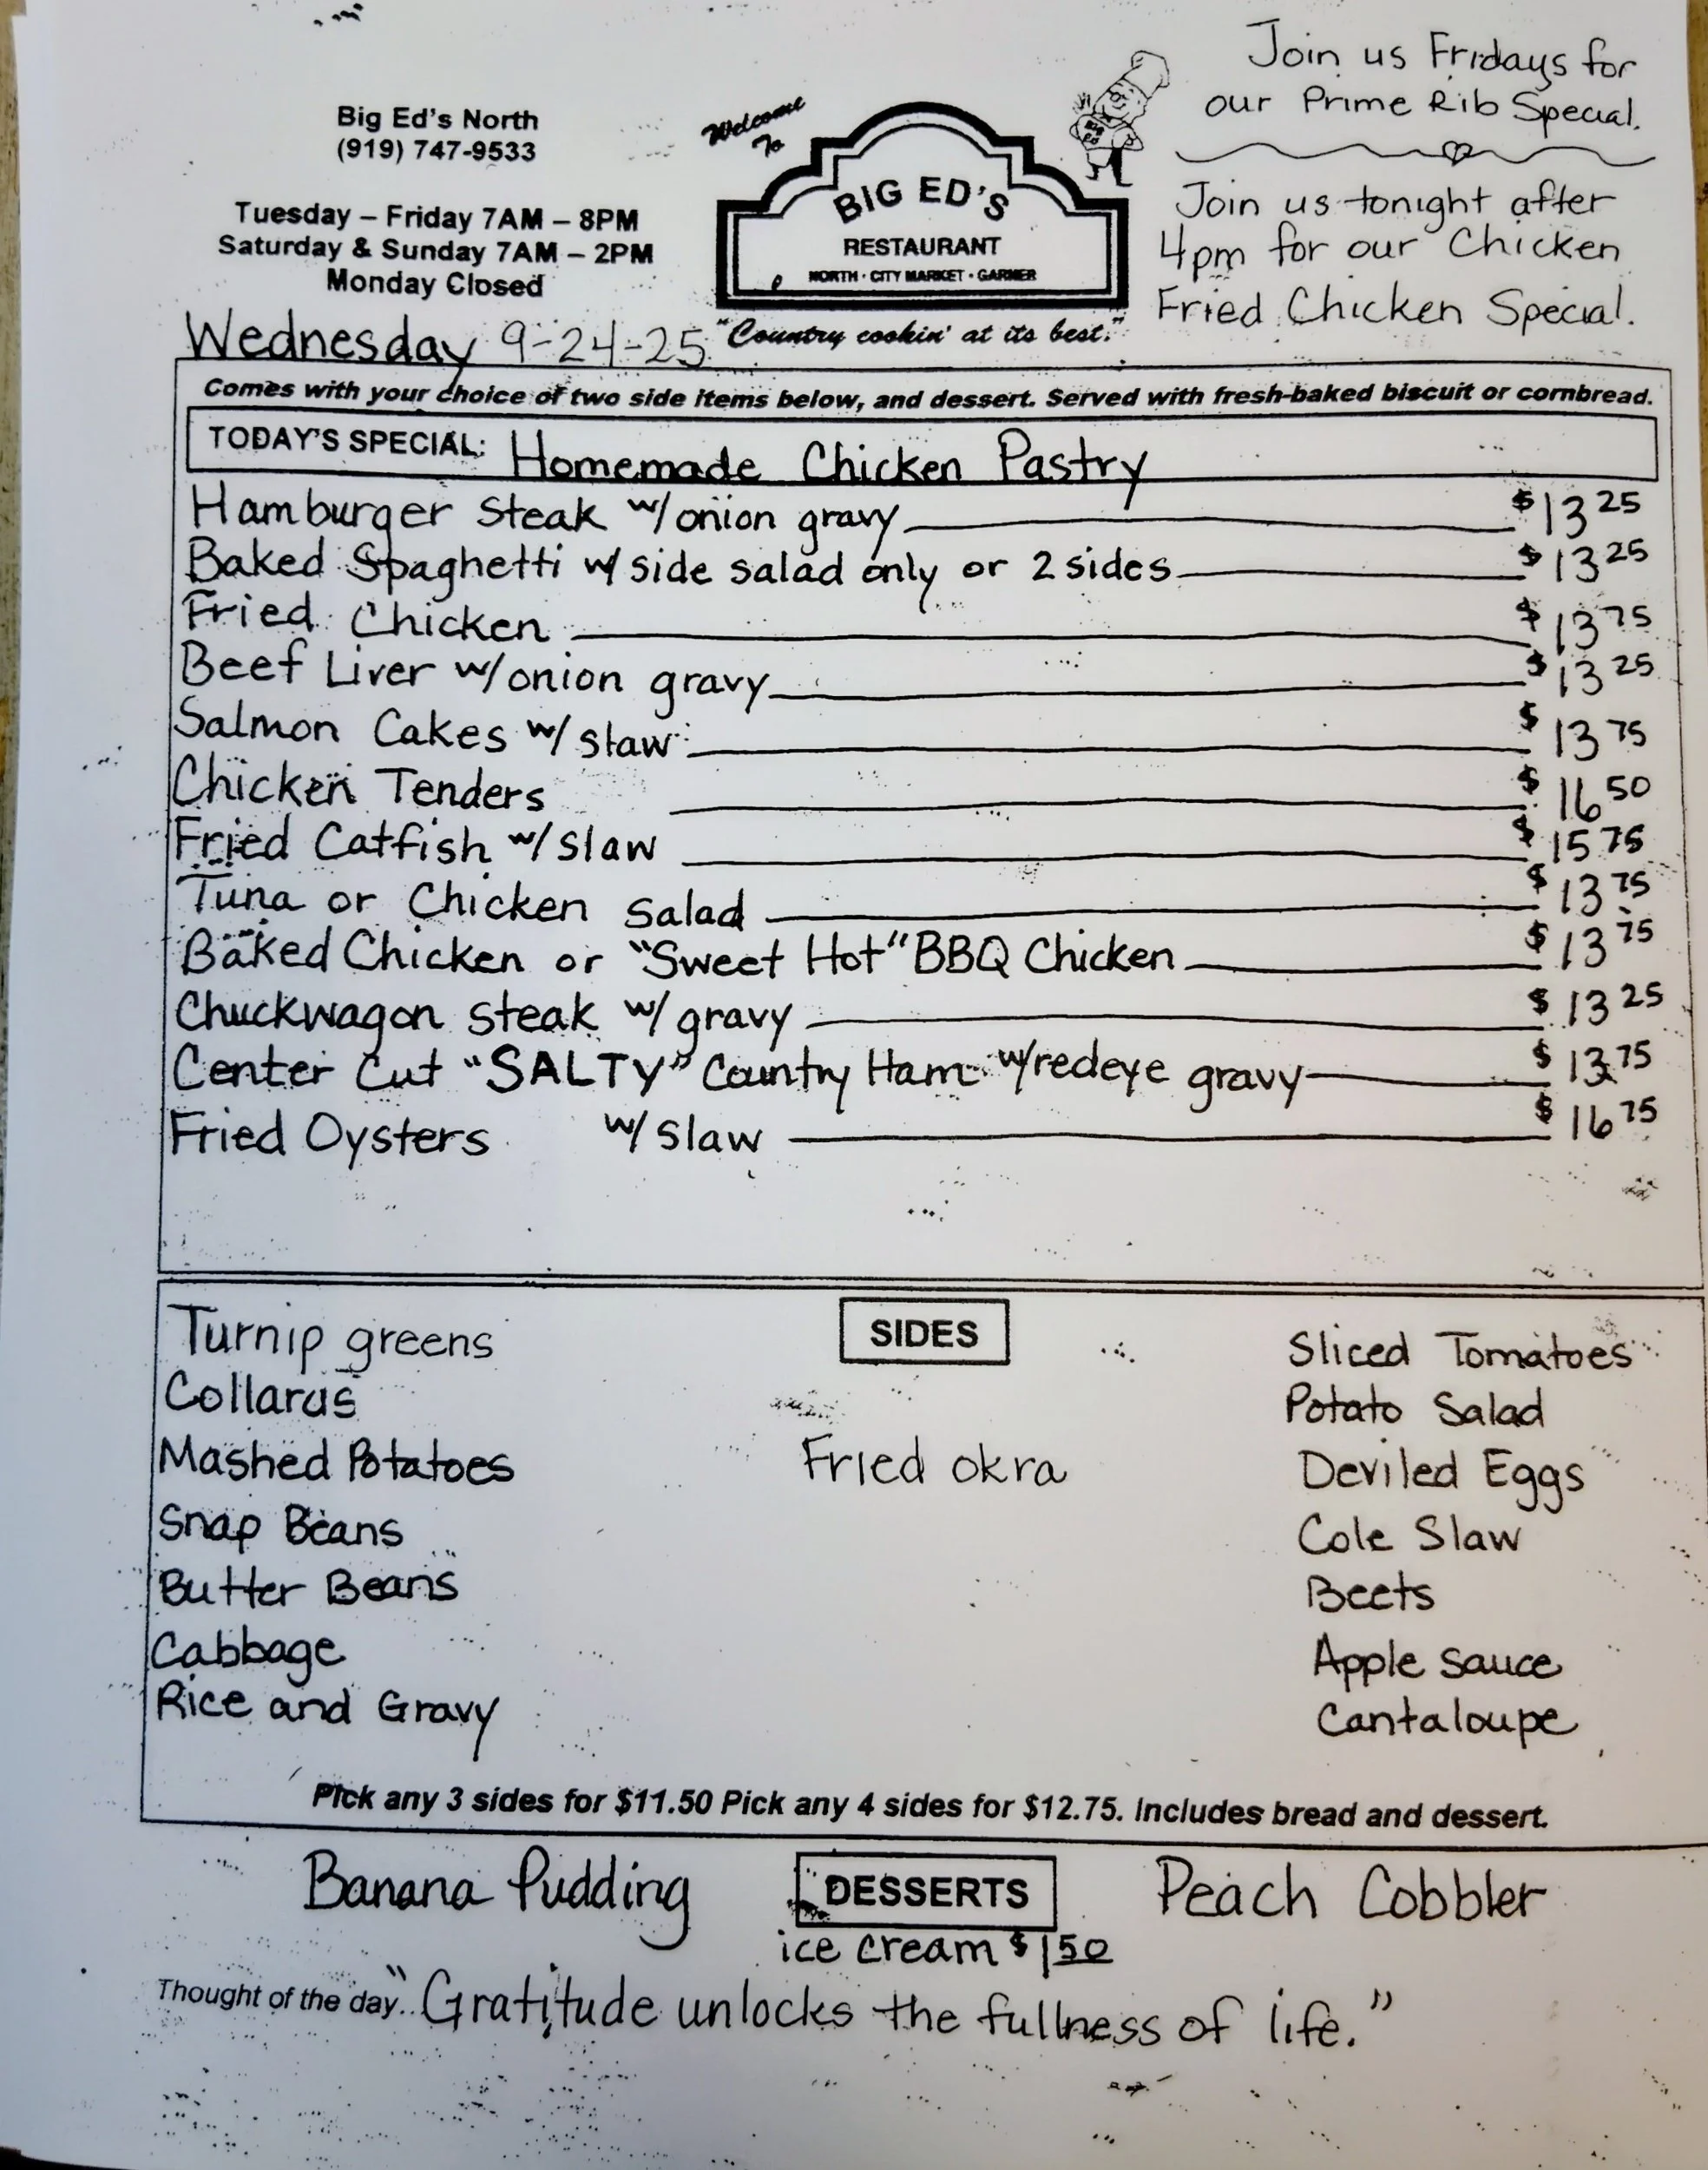 Big Ed's North
(919) 747-9533
Tuesday – Friday 7AM – 8PM
Saturday & Sunday 7AM – 2PM
Monday Closed
Welcome
To
BIG ED'S
RESTAURANT
NORTH · CITY MARKET · GARNER
"Country cookin' at its best."
BIG
ED
Join us Fridays for
our Prime Rib Special.
Join us tonight after
4pm for our Chicken
Fried Chicken Special.
Wednesday 9-24-25
Comes with your choice of two side items below, and dessert. Served with fresh-baked biscuit or cornbread.
TODAY'S SPECIAL: Homemade Chicken Pastry
Hamburger Steak w/onion gravy $13 25
Baked Spaghetti w/ side salad only or 2 sides $13 25
Fried Chicken $13 75
Beef Liver w/onion gravy $13 25
Salmon Cakes w/ slaw $13 75
Chicken Tenders $16 50
Fried Catfish w/ slaw $15 75
Tuna or Chicken salad $13 75
Baked Chicken or "Sweet Hot" BBQ Chicken $13 75
Chuckwagon steak w/ gravy $13 25
Center Cut "SALTY" Country Ham w/redeye gravy $13 75
Fried Oysters w/ slaw $16 75
SIDES
Turnip greens
Collards
Mashed Potatoes
Snap Beans
Butter Beans
Cabbage
Rice and Gravy
Fried okra
Sliced Tomatoes
Potato Salad
Deviled Eggs
Cole Slaw
Beets
Apple sauce
Cantaloupe
Pick any 3 sides for $11.50 Pick any 4 sides for $12.75. Includes bread and dessert.
Banana Pudding
DESSERTS
Peach Cobbler
ice cream $1 50
Thought of the day.. "Gratitude unlocks the fullness of life."